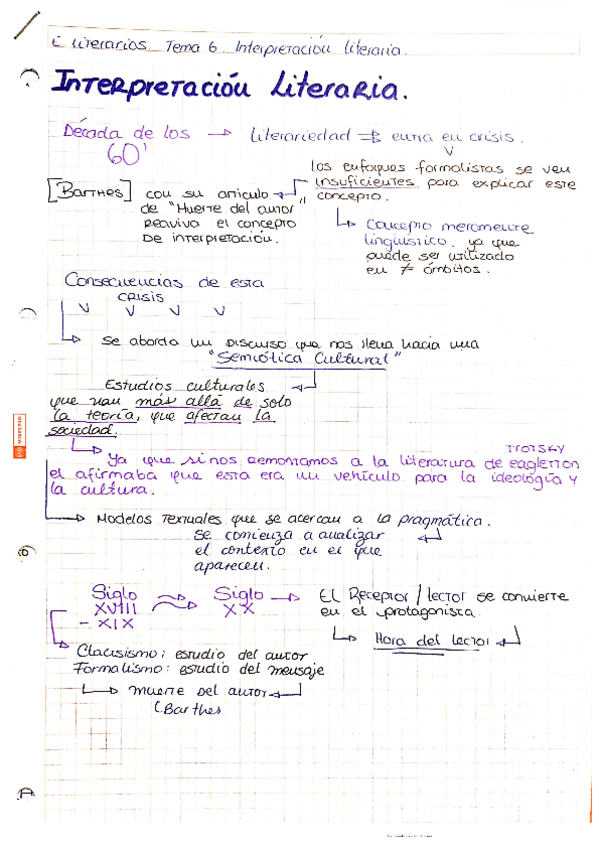 E literarios. Tema 6. Interpretación literaria.
Interpretación Literaria.
Década de los 60' → literariedad ⇒ entra en crisis.
los enfoques formalistas se ven
insuficientes para explicar este
concepto.
[Barthes] con su articulo
de "Muerte del autor"
Reaviva el concepto
De interpretación.
Concepto meramente
lingüístico. ya que
puede ser utilizado
en ≠ ámbitos.
Consecuencias de esta
crisis
Se aborda un Discurso que nos lleva hacia una
"Semiótica Cultural"
Estudios culturales
que van más allá de solo
la teoría, que afectan la
sociedad.
TROTSKY
Ya que si nos remontamos a la literatura de eagleton
el afirmaba que esta era un vehículo para la ideología y
la cultura.
Modelos Textuales que se acercan a la pragmática.
se comienza a analizar
el contexto en el que
aparecen.
Siglo XVIII - XIX
Siglo XX → El Receptor/lector se convierte
en el protagonista.
Hora del lector
Clacisismo: estudio del autor
Formalismo: estudio del mensaje
muerte del autor
(Barthes